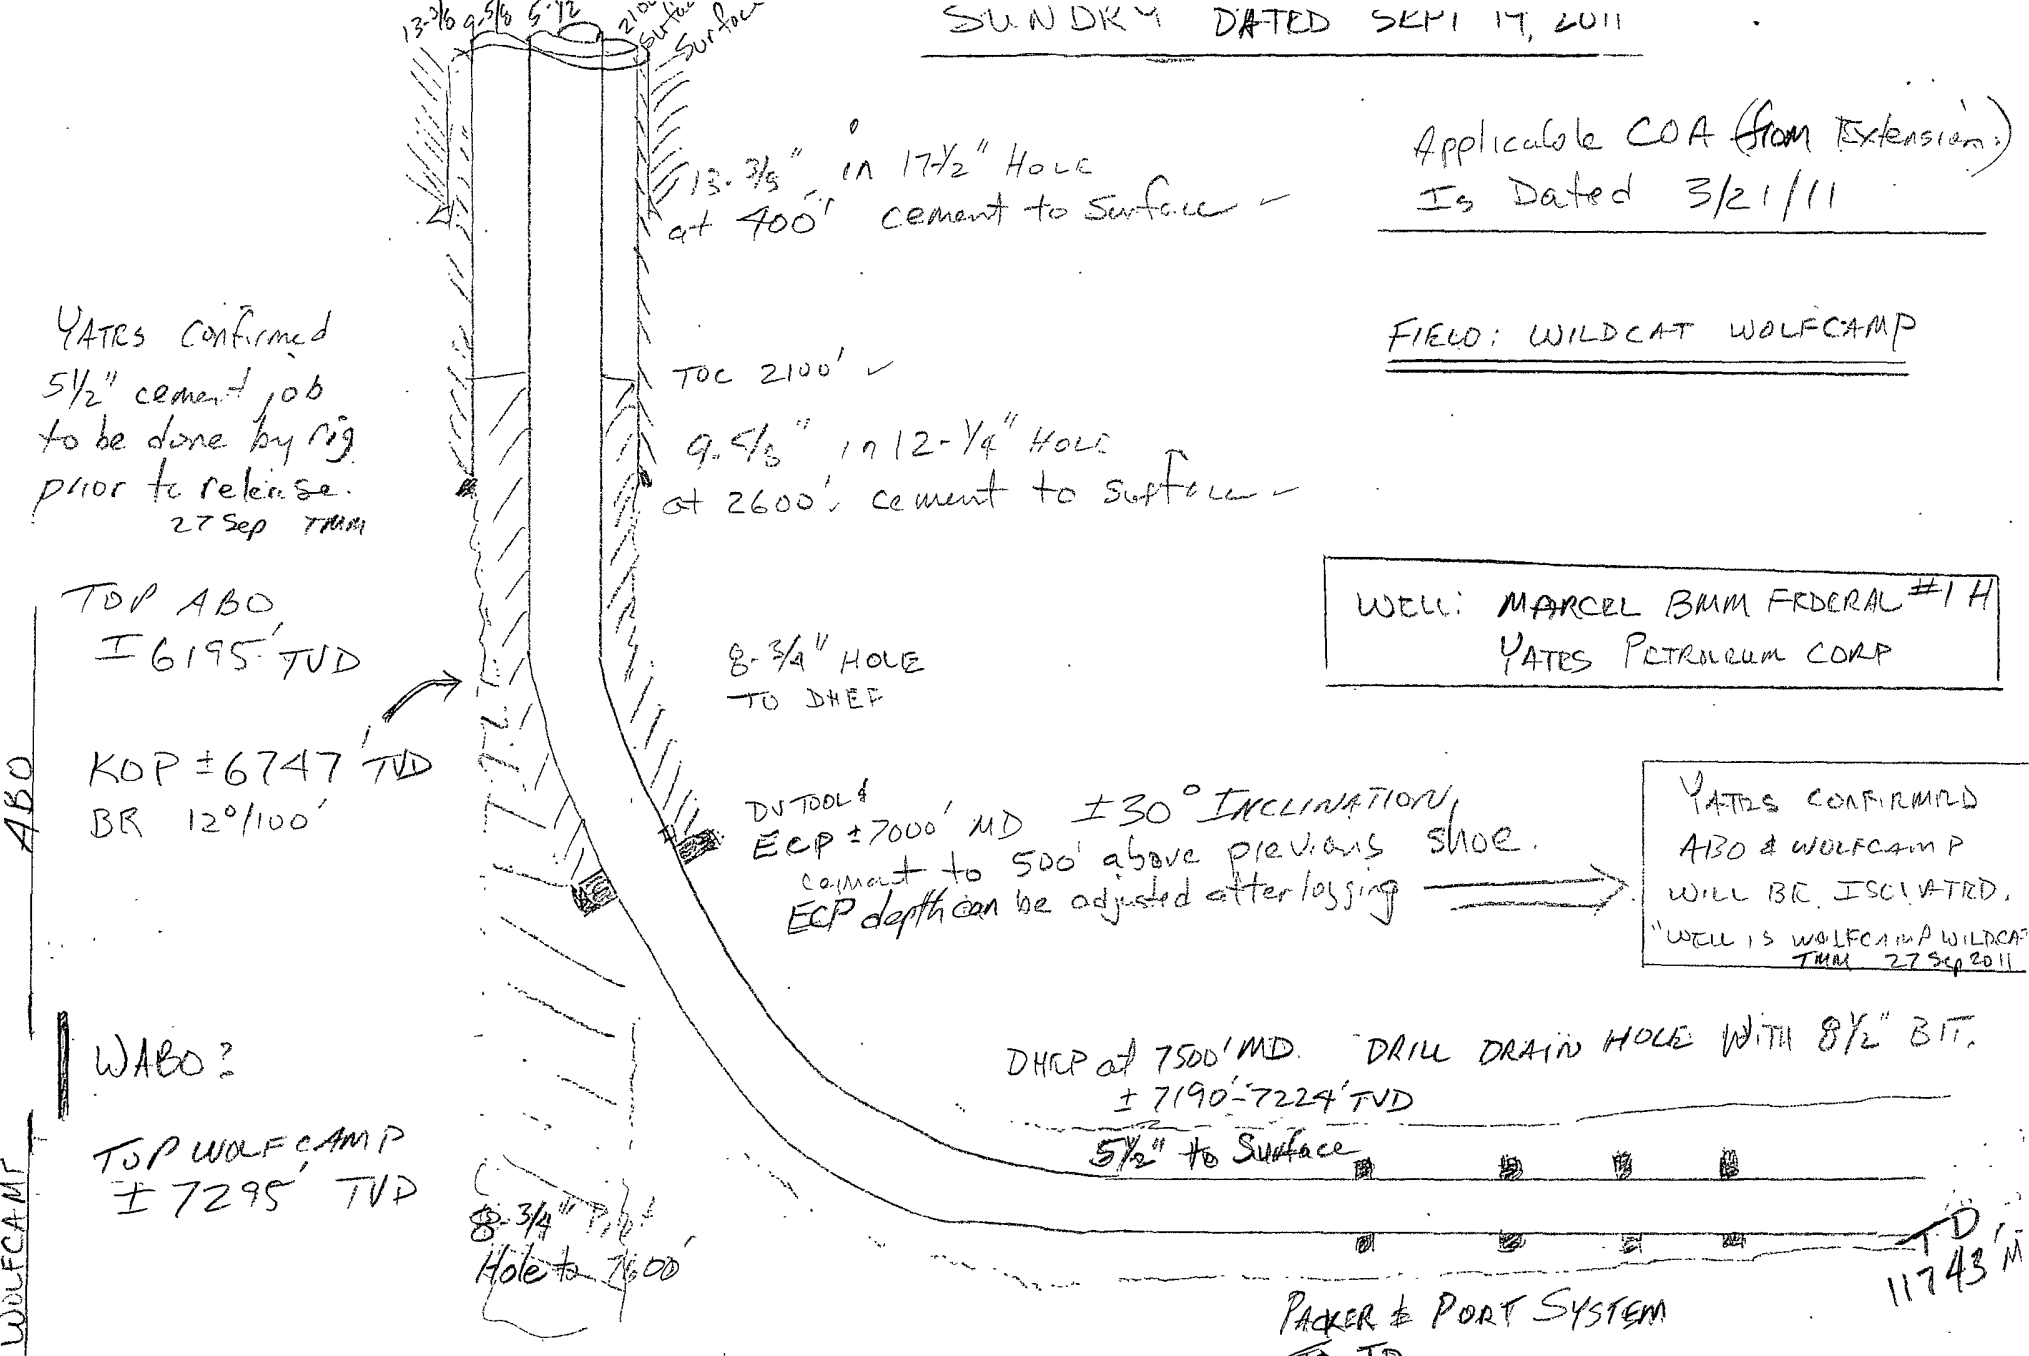 13-3/8 9-5/8 5-1/2
Surface
SUNDRY DATED SEPT 19, 2011
Applicable COA (from Extension.)
Is Dated 3/21/11
13-3/8" in 17-1/2" HOLE
at 400' cement to Surface
FIELD: WILDCAT WOLFCAMP
YATES Confirmed
5 1/2" cement job
to be done by rig
prior to release.
27 Sep TMM
TOC 2100'
9-5/8" in 12-1/4" HOLE
at 2600'. cement to surface
WELL: MARCEL BMM FEDERAL #1H
YATES PETROLEUM CORP
TOP ABO
± 6195' TVD
8-3/4" HOLE
TO DHEP
KOP ± 6747' TVD
BR 12°/100'
ABO
DV TOOL &
ECP ± 7000' MD ±30° INCLINATION,
cement to 500' above previous shoe.
ECP depth can be adjusted after logging
YATES CONFIRMED
ABO & WOLFCAMP
WILL BE ISOLATED.
"WELL IS WOLFCAMP WILDCAT
TMM 27 Sep 2011
WABO?
DHEP at 7500' MD. DRILL DRAIN HOLE WITH 8 1/2" BIT.
± 7190'-7224' TVD
5 1/2" to Surface
TOP WOLFCAMP
± 7295' TVD
WOLFCAMP
8-3/4" Pilot
Hole to 7600'
TD,
11743' M
PACKER & PORT SYSTEM
TO TD